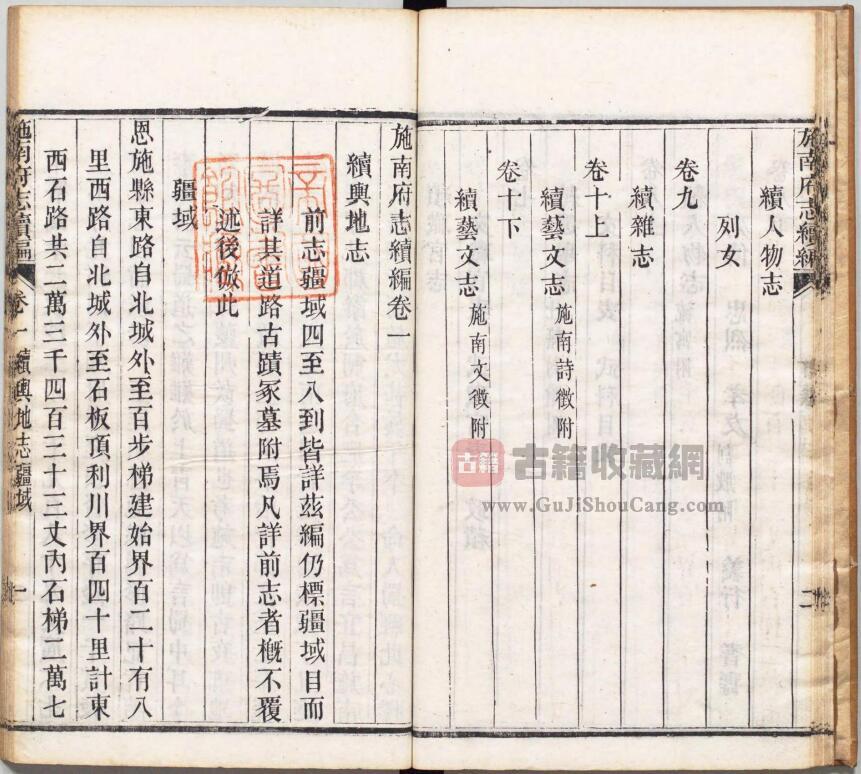 施南府志續編
續人物志
列女
卷九
續雜志
卷十上
續藝文志 施南詩徵附
卷十下
續藝文志 施南文徵附
二
施南府志續編卷一
續輿地志
前志疆域四至八到皆詳茲編仍標疆域目而
詳其道路古蹟冢墓附焉凡詳前志者槪不覆
述後倣此
疆域
恩施縣東路自北城外至百步梯建始界百二十有八
里西路自北城外至石板頂利川界百四十里計東
西石路共二萬三千四百三十三丈內石梯二萬七
施南府志續編 卷一 續輿地志疆域 一
古籍
古籍收藏網
www.GuJiShouCang.com